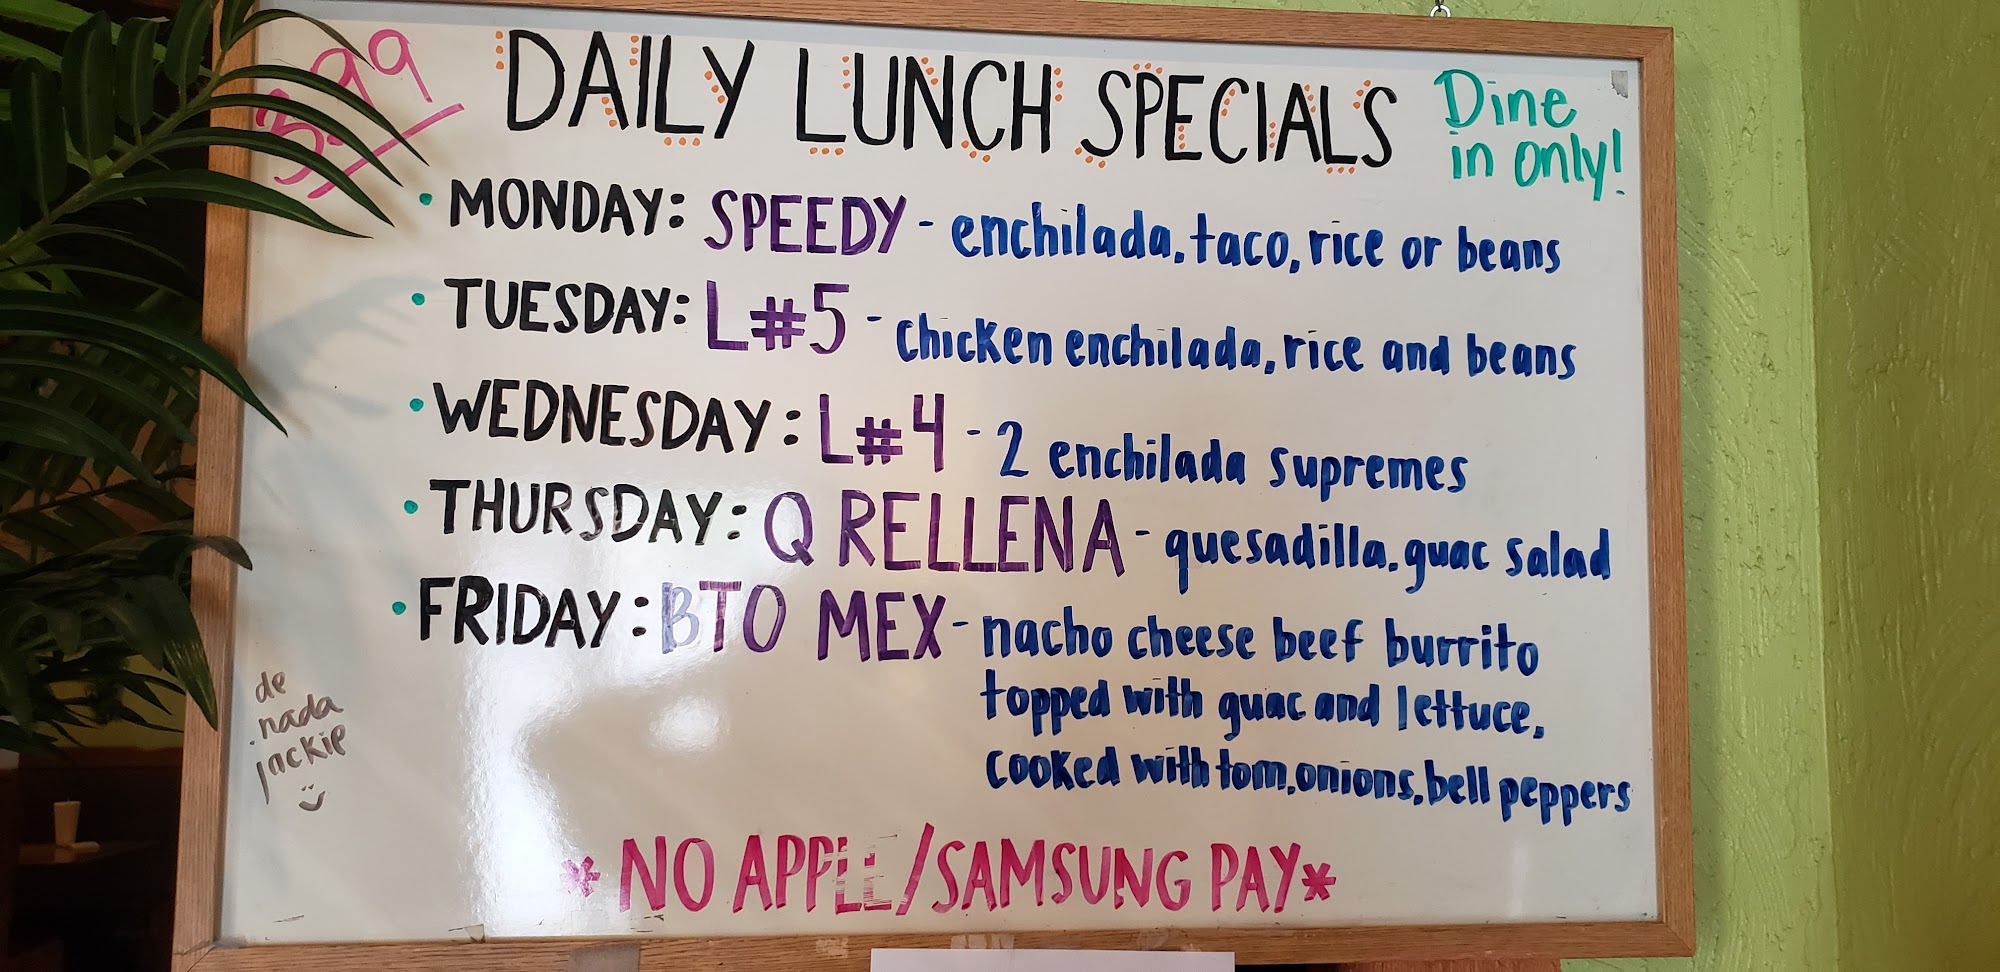 DAILY LUNCH SPECIALS
Dine
in only!
• MONDAY: SPEEDY - enchilada, taco, rice or beans
• TUESDAY: L#5 - chicken enchilada, rice and beans
• WEDNESDAY: L#4 - 2 enchilada supremes
• THURSDAY: Q RELLENA - quesadilla, guac salad
• FRIDAY: BTO MEX - nacho cheese beef burrito
topped with guac and lettuce,
cooked with tom, onions, bell peppers
de
nada
jackie
* NO APPLE/SAMSUNG PAY *